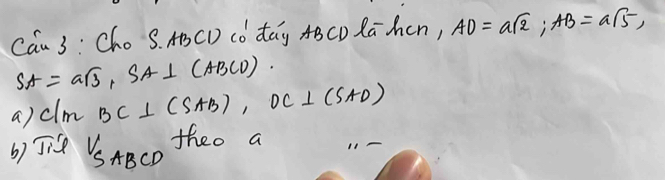 Câu 3 : Cho S.ABCD có đáy ABCD là hcn, AD = a√2 ; AB = a√5,
SA = a√3, SA ⊥ (ABCD) .
a) c/m BC ⊥ (SAB) , DC ⊥ (SAD)
b) Tính V_SABCD theo a